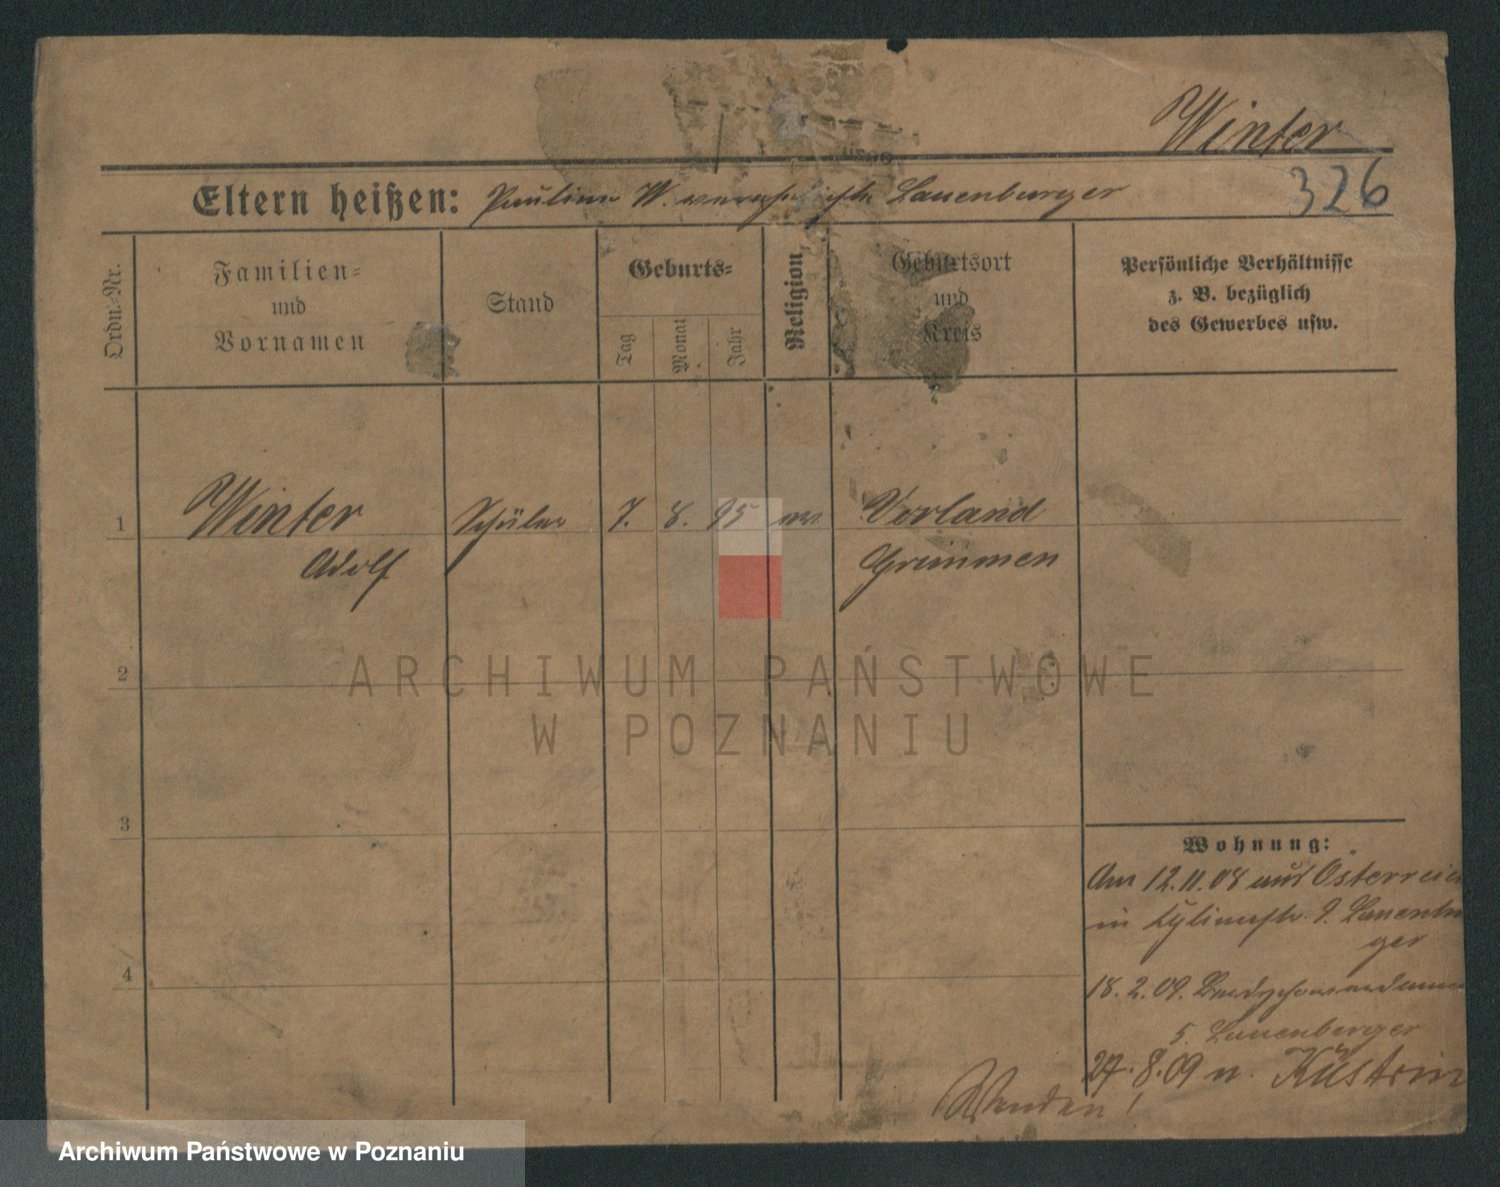 Winter
Eltern heißen: Pauline W. verehelichte Lauenburger
326
Ordn.-Nr.
Familien-
und
Vornamen
Stand
Geburts-
Tag
Monat
Jahr
Religion
Geburtsort
und
Kreis
Persönliche Verhältnisse
z. B. bezüglich
des Gewerbes usw.
1 Winter Schüler 7. 8. 95 ev. Vorland
Adolf Grimmen
2
3
4
Wohnung:
Am 12.11.08 aus Österreich
in 9. Lauenbur
ger
18.2.09.
5. Lauenberger
27.8.09 n. Küstrin
Wenden!
ARCHIWUM PAŃSTWOWE
W POZNANIU
Archiwum Państwowe w Poznaniu